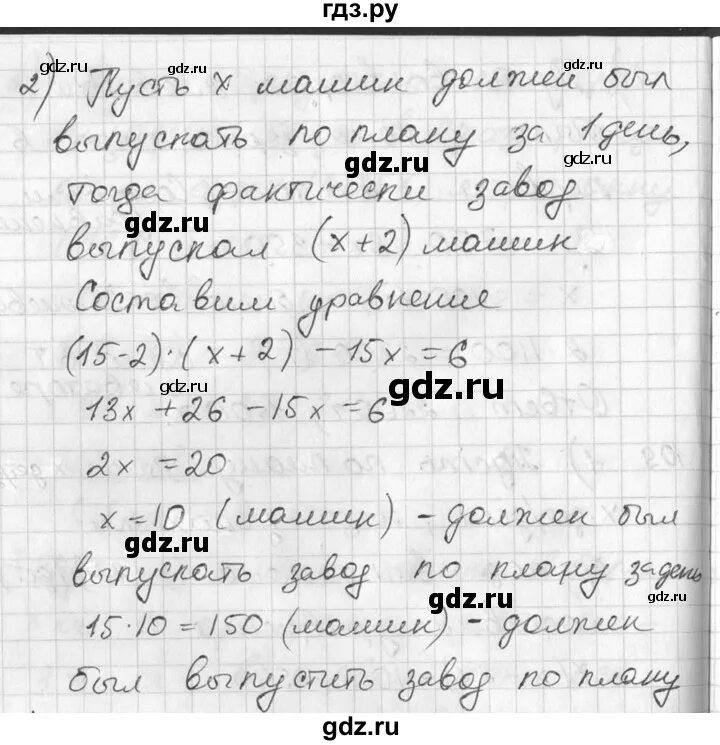 гдз.ру
gdz.ru gdz.ru gdz.ru
2) Пусть x машин должен был
выпускать по плану за 1 день,
gdz.ru gdz.ru
тогда фактически завод
gdz.ru gdz.ru
выпускал (x+2) машин
Составим уравнение
(15-2)·(x+2) - 15x = 6
gdz.ru gdz.ru
13x + 26 - 15x = 6
2x = 20
x = 10 (машин) - должен был
gdz.ru gdz.ru
выпускать завод по плану за день
gdz.ru gdz.ru
15·10 = 150 (машин) - должен
gdz.ru gdz.ru
был выпустить завод по плану
gdz.ru